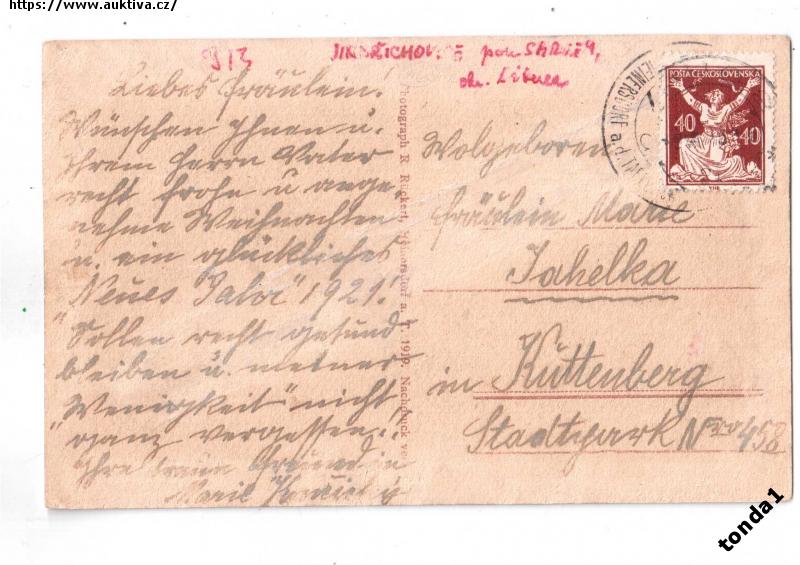 https://www.auktiva.cz/
913
JINDŘICHOVICE pod SMRKEM,
okr. Liberec
Liebes Fräulein!
Wünschen Ihnen u.
Ihrem Herrn Vater
recht frohe u ange
nehme Weihnachten
u. ein glückliches
"Neues Jahr" 1921!
Sollen recht gesund
bleiben u. meiner
"Wenigkeit" nicht
ganz vergessen!
Ihre treue Freundin
Marie
Photograph R. Rückert, Heinersdorf a. T. 1919. Nachdruck ve
POŠTA ČESKOSLOVENSKÁ
40 40
HEINERSDORF a. T.
Wolgeboren
Fräulein Marie
Jahelka
in Kuttenberg
Stadtpark Nro 458
tonda1